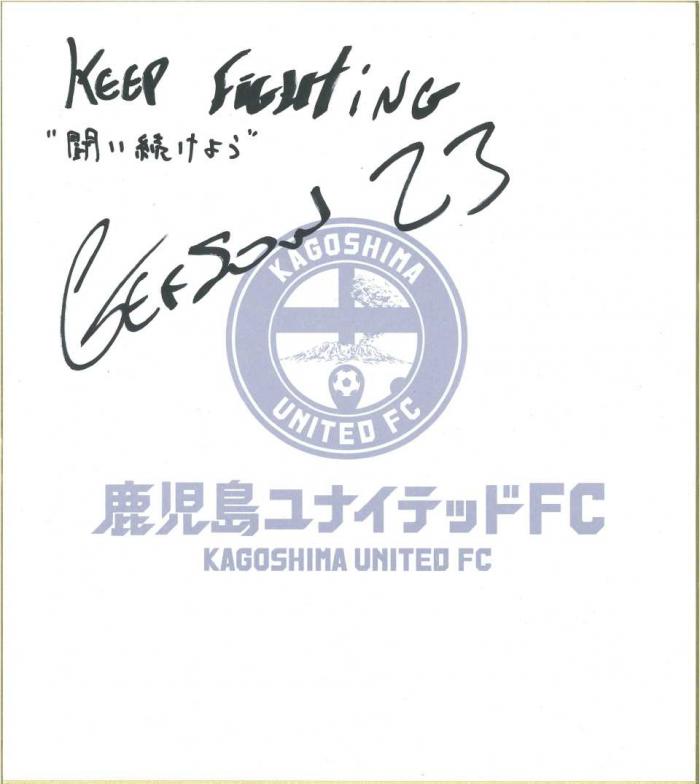 KEEP FIGHTING
"闘い続けよう"
GERSON 23
KAGOSHIMA
UNITED FC
鹿児島ユナイテッドFC
KAGOSHIMA UNITED FC